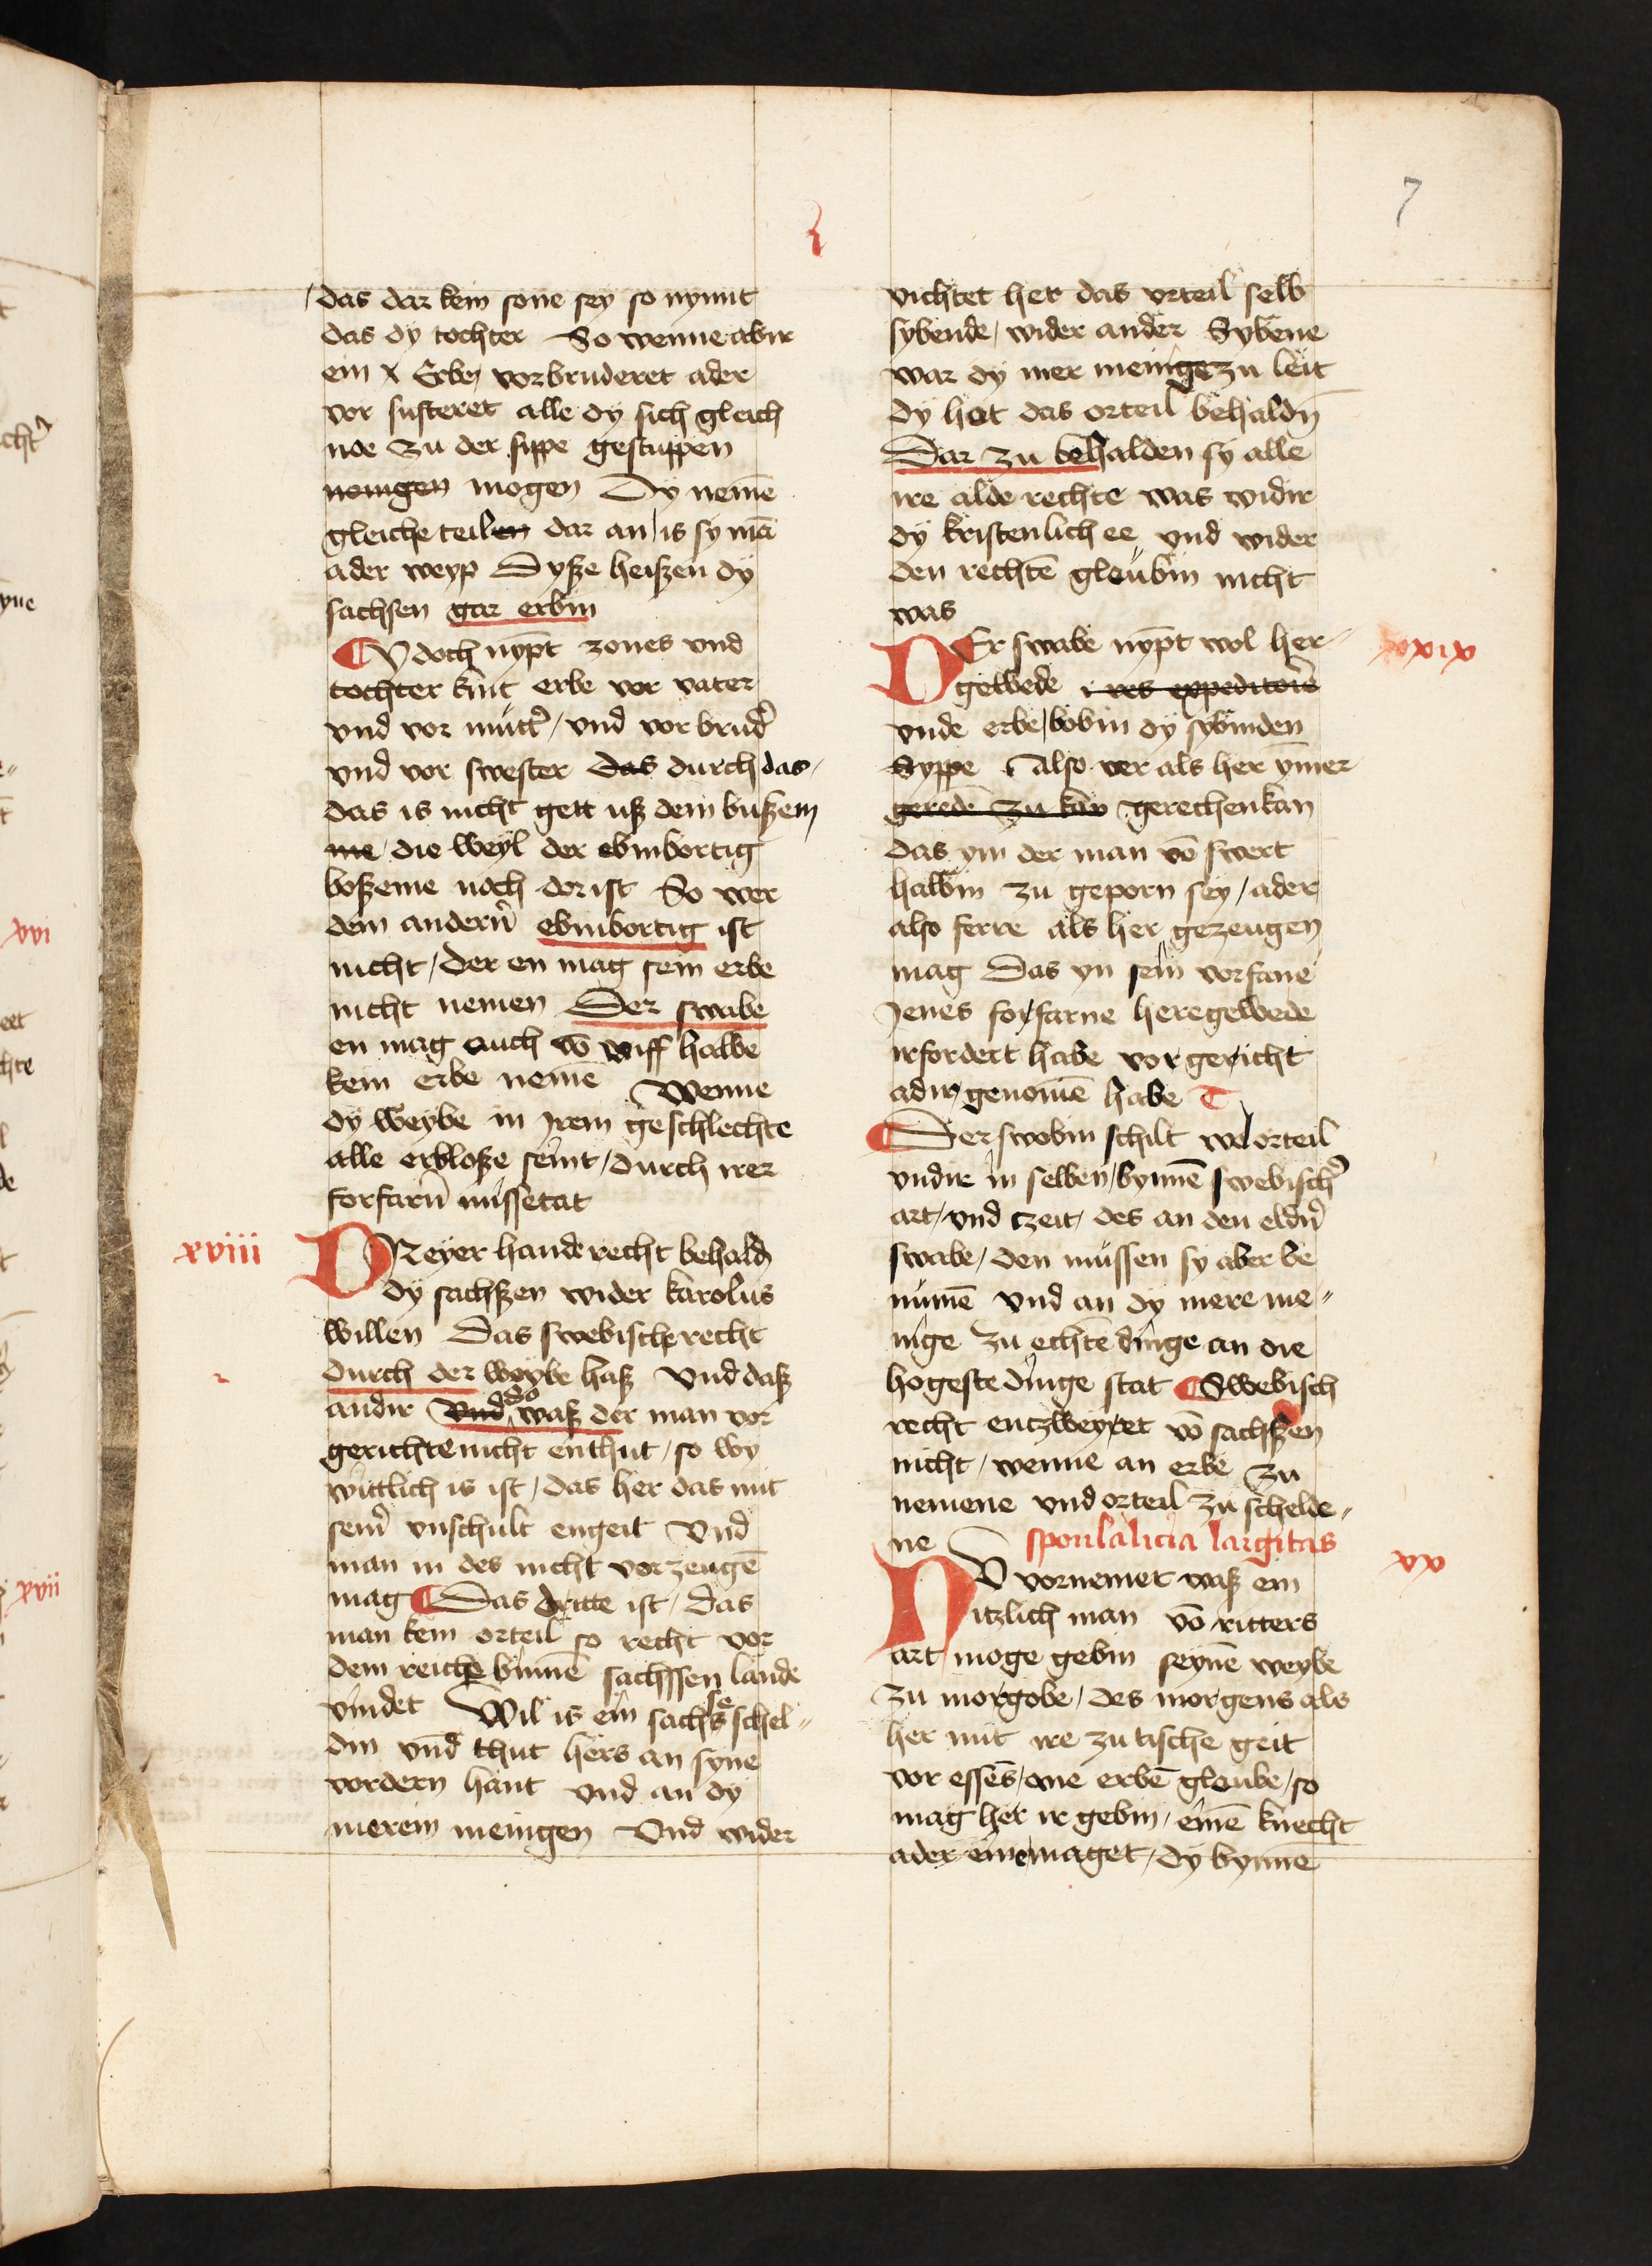 7
das dar kein sone sey so nymt
das dy tochter So wenne abir
ein x Erbe vorbruderet ader
vor susteret alle dy sich gleich
noe zu der sippe gestuppen
mogen Dy nemē
gleiche teilen dar an is sy mā
ader weyp Dysze heiszen dy
sachsen gar erbin
¶ Y doch nypt zones vnd
tochter kint erbe vor vater
vnd vor mutt̕ / vnd vor brud̕
vnd vor swester das durch das /
das is nicht gett usz dem buszem
me die weyl der ebinbortig
boszeme noch dor ist So wer
dem andern̄ ebinbortig ist
nicht / der en mag sein erbe
nicht nemen Der swabe
en mag auch vō wiff halbe
kein erbe nemē Wenne
dy weybe in Jrem geschlechte
alle erblosze seint / durch irer
forfarn̄ missetat
xviii
DReyer hande recht behald̄
dy sachszen wider karolus
willen Das swebische recht
durch der weybe hasz Vnd dasz
andir Vnd do wasz der man vor
gerichte nicht enthut / so wy
wittlich is ist / das her das mit
sein̄ vnschult engeit Vnd
man in des nicht vorzeugē
mag ¶ Das dritte ist / das
man kein orteil so recht vor
dem reiche binnē sachssen lande
vindet Wil is ein sachsse schel=
din vnd thut hers an syne
vordern hant vnd an dy
merein meinigen Vnd wider
vichtet her das vrteil selb
sybende / wider ander Sybene
war dy mer meinige zu leit
dy hot das orteil behaldn̄
Dar zu behalden sy alle
ire alde rechte was widir
dy kristenlich ee vnd wider
den rechtē gleubin nicht
was
xix
DEr swabe nypt wol her=
gewede i res expeditorie
vnde erbe / bobin dy sybinden
Syppe Also ver als her ym̄er
gerede zu kan gerechen kan
das ym der man vō swert
halbin zu geporn sey / ader
also ferre als her gezeugen
mag Das yn sein vorfane
Jenes forfarne heregewede
irfordert habe vor gericht
adir genomē habe
¶ Der swobin schilt wol orteil
vndir in selben / bynnē swebisch̕
art / vnd czeit / des an den eldn̄
swabe / den mussen sy aber be
numē vnd an dy mere me=
nige zu echtē dinge an die
hogeste dinge stat ¶ Swebisch
recht entzweyet vō sachszen
nicht / wenne an erbe zu
nemene vnd orteil zu schelde=
ne sponsalicia largitas
xx
NV vornemet wasz ein
itzlich man vō ritters
art moge gebin seynē weybe
zu morgobe / des morgens als
her mit ire zu tische geit
vor essēs / one erbē gleube / so
mag her ir gebin / einē knecht
ader eine maget / dy bynnē
xvi
xvii